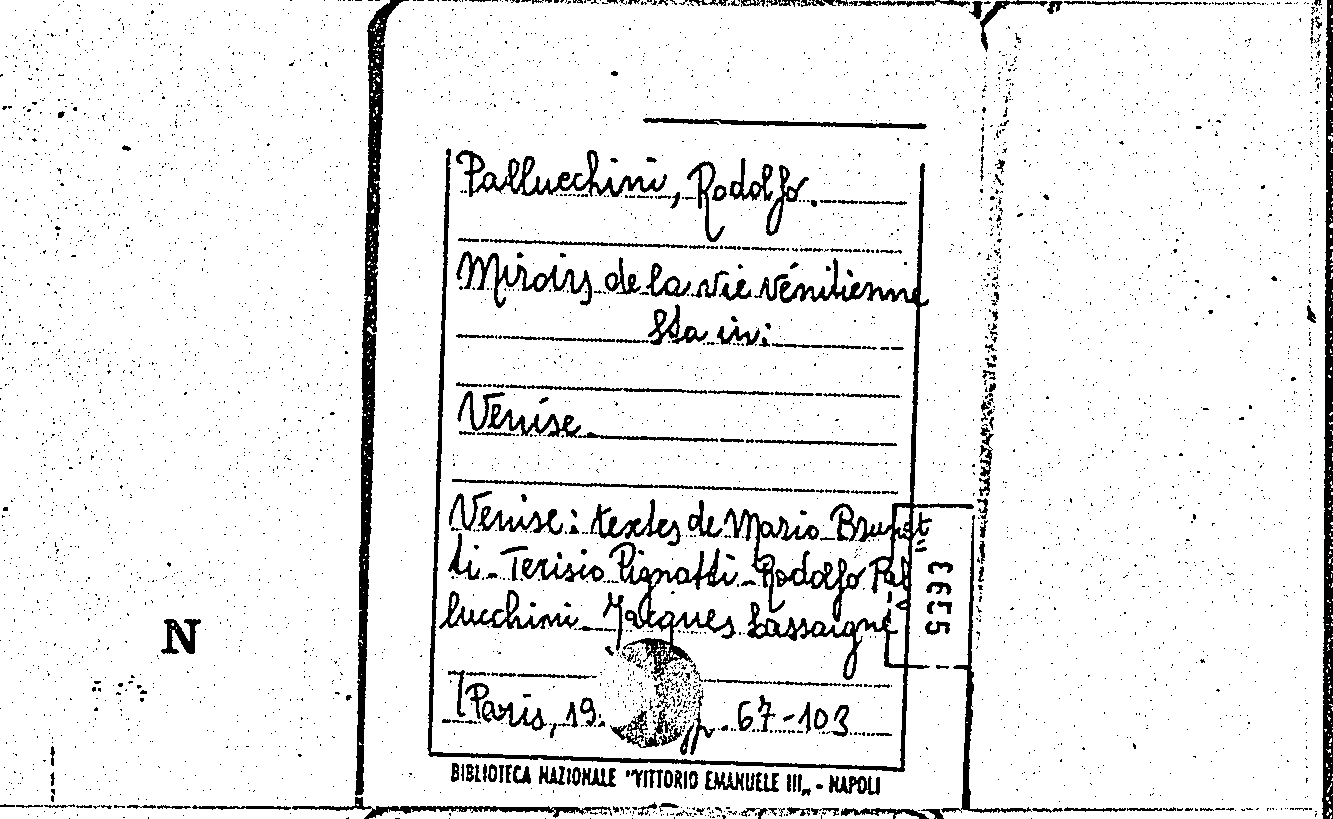 Pallucchini, Rodolfo.
Miroirs de la vie vénitienne
Sta in:
Venise.
Venise: textes de Mario Brunet
ti - Terisio Pignatti - Rodolfo Pal
lucchini - Jacques Lassaigne
Paris, 19 pp. 67-103
BIBLIOTECA NAZIONALE "VITTORIO EMANUELE III„ - NAPOLI
N